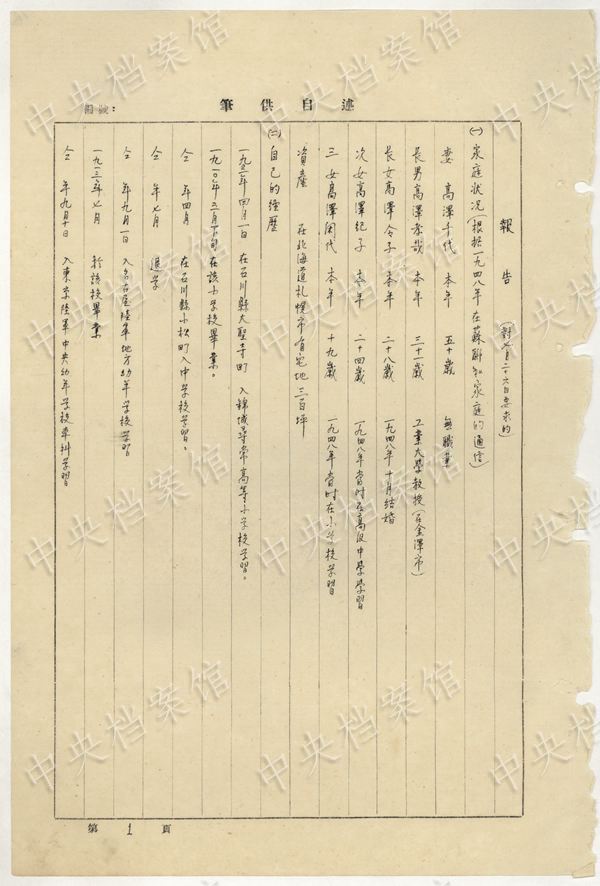 筆供自述
編號：
報告 （對七月二十六日要求的）
㈠ 家庭狀況（根据一九四八年在蘇聯和家庭的通信）
妻 高澤千代 本年 五十歲 無職業
長男 高澤孝哉 本年 三十一歲 工業大學教授（在金澤市）
長女 高澤令子 本年 二十八歲 一九四八年十月結婚
次女 高澤紀子 本年 二十四歲 一九四八年當時在高級中學學習
三女 高澤閑代 本年 十九歲 一九四八年當時在小学校学習
資產 在北海道札幌市有宅地三百坪
㈡ 自己的經歷
年四月一日 在石川縣大聖寺町 入錦城尋常高等小学校学習。
一九一〇年三月下旬 在該小学校畢業。
仝 年四月 在石川縣小松町入中学校学習。
仝 年七月 退学
仝 年九月一日 入名古屋陸軍地方幼年学校学習
一九一三年七月 於該校畢業
仝 年九月十日 入東京陸軍中央幼年学校本科学習
第 1 頁
中央档案馆